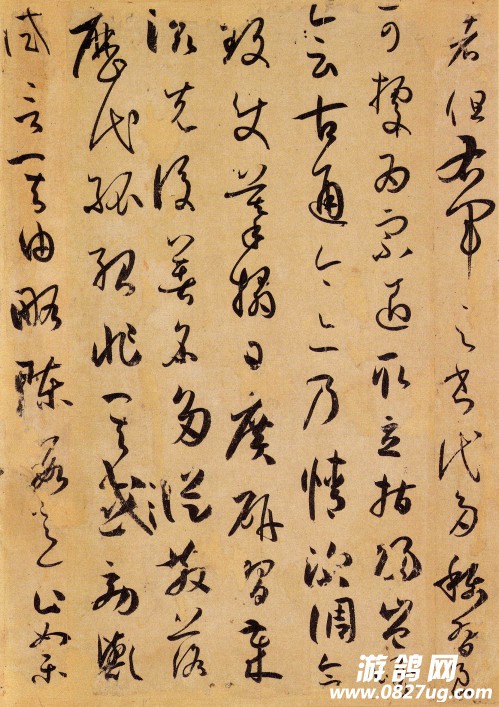 者但右軍之書代多稱習良
可據為宗匠取立指歸豈惟
會古通今亦乃情深調合
致使摹搨日廣研習歲
滋先後著名多從散落
歷代孤紹非其効歟
試言其由略陳數意止如樂
游鸽网
www.0827ug.com